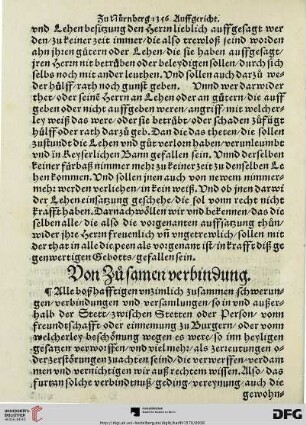 Zu Nürnberg 1356. Auffgericht.
vnd Lehen besitzung den Herrn lieblich auffgesagt wer
den / zu keiner zeit immer / die also trewloß seind worden
an jhren gütern oder Lehen / die sie haben auffgesagt / je
ren Herrn mit nicht betrüben oder beleydigen sollen / durch sich
selbs noch mit ander leuthen. Vnd sollen auch darzů we-
der hülff / rath noch gunst geben. Vnnd wer darwider
thet / oder seinē Herrn an Lehen oder an gütern / die auff
geben oder nicht auffgeben weren / angriff / mit welcher-
ley weiß das were / oder sie betrübt / oder schaden zůfügt
hülff oder rath dar zů geb. Dan die das theten / die sollen
zustundt die Lehen vnd gůt verlorn haben / verleumbt
vnd in Keyserlichen Bann gefallen sein. Vnnd derselben
keiner fürbaß nimmer mehr zu keiner zeit zu denselben Le
hen kommen. Vnd sollen jnen auch von newem nimmer-
mehr werden verliehen / in kein weiß. Vnd ob jnen darwi
der Lehen einsatzung geschehe / die sol vonn recht nicht
krafft haben. Darnach wöllen wir vnd bekennen / das die
selben alle / die also die vorgenanten auffsatzung thün /
wider jhre Herrn freuenlich vñ vngetrewlich / sollen mit
der that in alle die peen als vorgenant ist / in krafft diß ge
genwertigen Gebotts / gefallen sein.
Von Zůsamen verbindung.
¶ Alle boßhafftigen vnzimlich zusammen schwerun-
gen / verbindungen vnd versamlungen / so in vnd außer-
halb der Stett / zwischen Stetten oder Person / vonn
freundtschafft oder einnemung zu Burgern / oder vonn
welcherley beschönung wegen es were / so inn heyligen
gesatzen verworffen / vnd vielmehr als zerteuungen / o-
der zerstörungen zu achten seind / die verwerffen / verdam-
men vnd vernichtigen wir auß rechtem wissen. Also / das
fürtan solche verbindtnuß / geding / vereynung / auch die
gewohn-
http://digi.ub.uni-heidelberg.de/diglit/